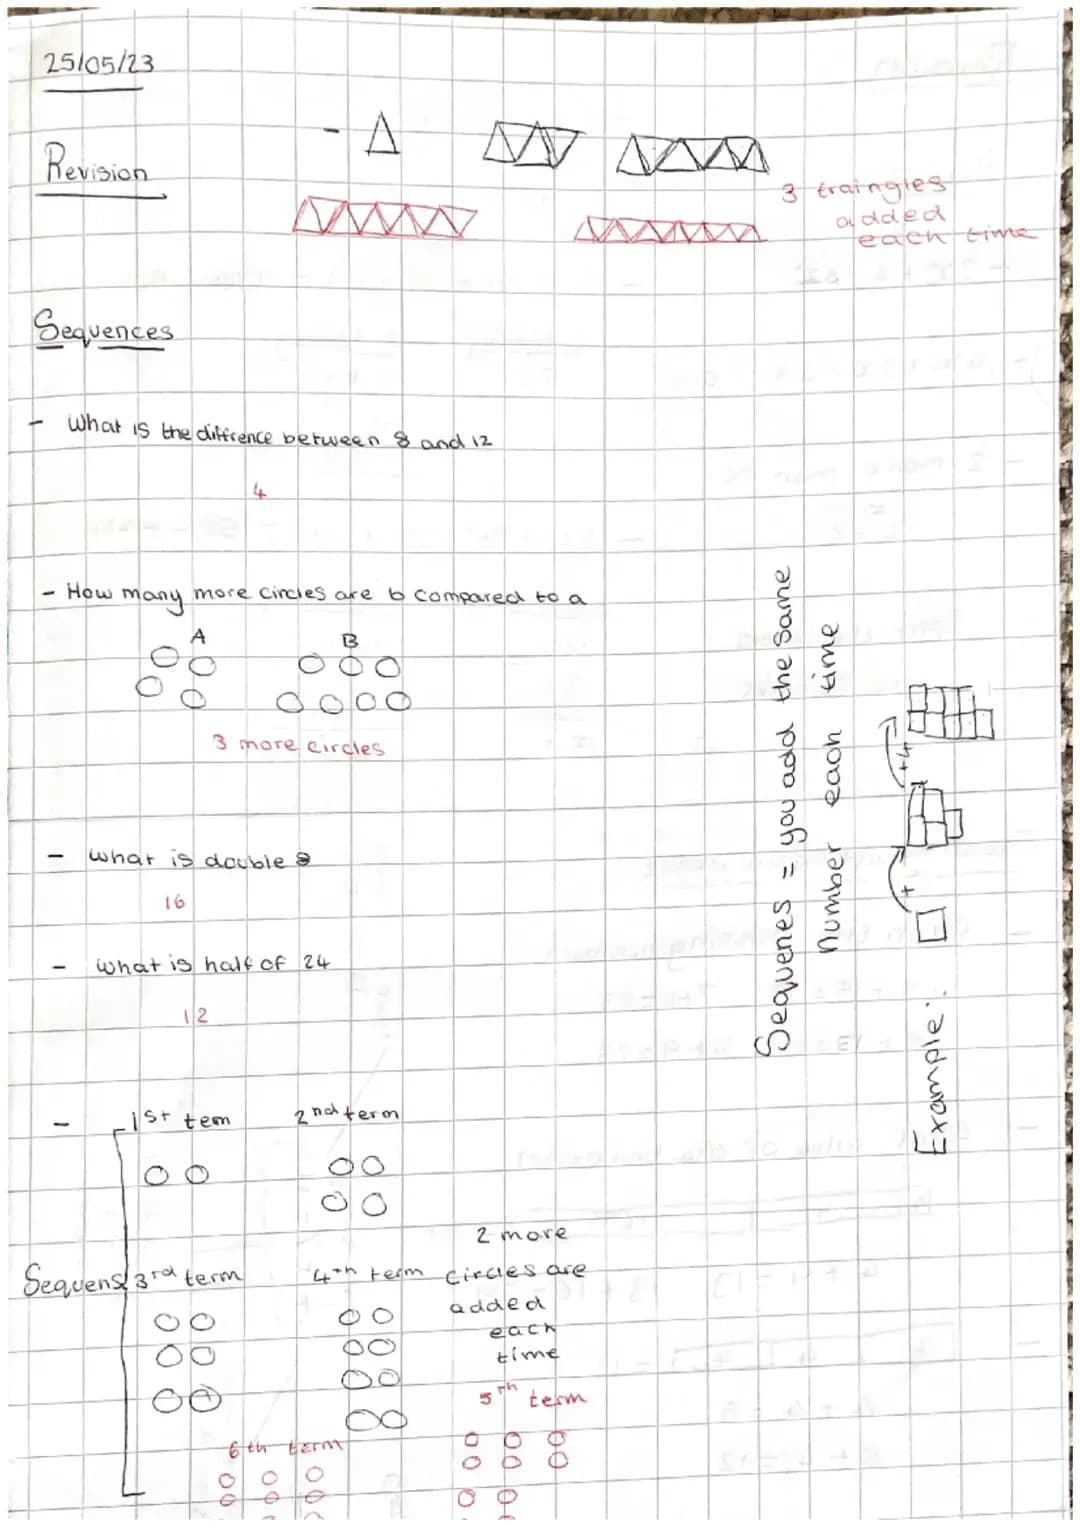 25/05/23
Revision
3 traingles
added
each time
Sequences
- What is the diffrence between 8 and 12
4
- How many more circles are b compared to a
A B
3 more circles
- What is double 8
16
- What is half of 24
12
- 1st tem 2nd term
2 more
Sequens 3rd term 4th term circles are
added
each
time
5th term
6th term
Sequenes = you add the same
number each time
Example:
+ +4